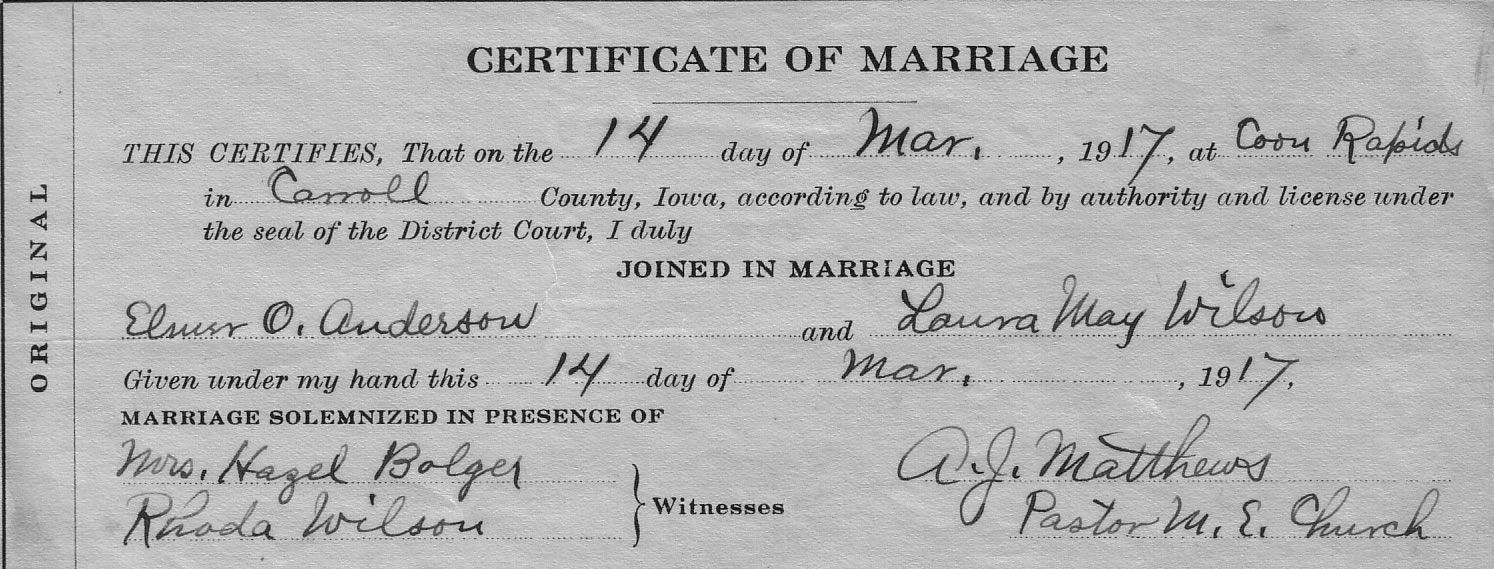 ORIGINAL
CERTIFICATE OF MARRIAGE
THIS CERTIFIES, That on the 14 day of Mar. , 1917, at Coon Rapids
in Carroll County, Iowa, according to law, and by authority and license under
the seal of the District Court, I duly
JOINED IN MARRIAGE
Elmer O. Anderson and Laura May Wilson
Given under my hand this 14 day of Mar. , 1917.
MARRIAGE SOLEMNIZED IN PRESENCE OF
Mrs. Hazel Bolger A. J. Matthews
Rhoda Wilson Witnesses Pastor M. E. Church